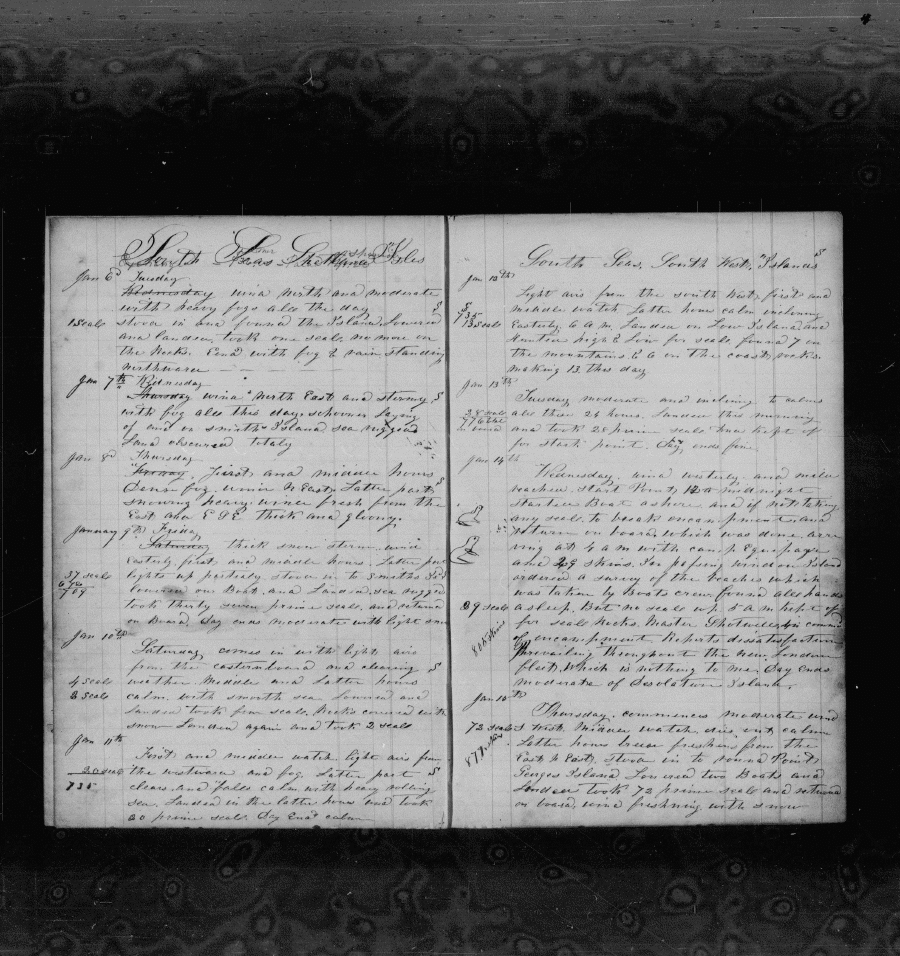 South Seas Shetland Isles
Jan 6th Tuesday
Wednesday wind north and moderate
with heavy fogs all the day
1 Seal stove in and found the Island Lowered
and landed, took one seal, no more on
the Rocks. End with fog & rain standing
northward
Jan 7th Wednesday
Thursday wind North East and stormy
with fog all this day, schooner laying
of and on smith Island sea rugged
Land obscured totaly
Jan 8 Thursday
First and middle hours
Dense fog wind N East. Latter part
snowing heavy wind fresh from the
East and E S E, thick and gloomy.
January 9th Friday
Saturday thick snow storm, wind
Easterly first and middle hours. Latter part
37 seals lights up partially stove in to Smiths Isd
676 lowered on Boat and Landed, sea rugged
709 took thirty seven prime seals, and returned
on Board. Day ends moderate with light snow
Jan 10th
Saturday comes in with light airs
from the eastern board and clearing
4 Seals weather Middle and Latter hours
2 Seals calm with smooth sea lowered and
Landed took four seals, Rocks covered with
snow Landed again and took 2 seals
Jan 11th
First and middle watch light airs from
20 seals the westward and fog. Latter part
735 clears and falls calm with heavy rolling
sea. Landed in the latter hours and took
20 prime seals. Day Ends calm
South Seas, South West, "Islands"
Jan 12th
Light airs from the south West, first and
middle watch Latter hours calm inclining
735
13 seals Easterly, 6 A.M. Landed on Low Island and
hunted high & Low for seals found 7 in
the mountains & 6 on the coast, rocks.
making 13 this day
Jan 13th
Tuesday moderate and inclining to calms
28 seals all these 24 hours. Landed this morning
776 and took 28 prime seals then kept of
for start point. Day ends fine
Jan 14th
Wednesday, wind westerly and mild
reached Start Point, 12 midnight
started Boat ashore and if not taking
any seals to break encampment and
return on board, which was done arri
ving at 4 a m with camp Equipage
and 29 skins. In passing window Island
ordered a survey of the beaches which
was taken by Boats crew, found all hands
29 seals asleep, But no seals up. 5 A m kept of
for seal Rocks. Master Shotwell, in comm
805 skins of encampment Reports dissatisfaction
prevailing throughout the New London
fleet, which is nothing to me. Day ends
moderate of Desolation Island.
Jan 15th
Thursday, commences moderate wind
72 seals S West. Middle watch dies out calm
877 skins Latter hours breeze freshens from the
East N East, stove in to round Point
Georges Island Lowered two Boats and
Landed took 72 prime seals and returned
on board wind freshning with snow